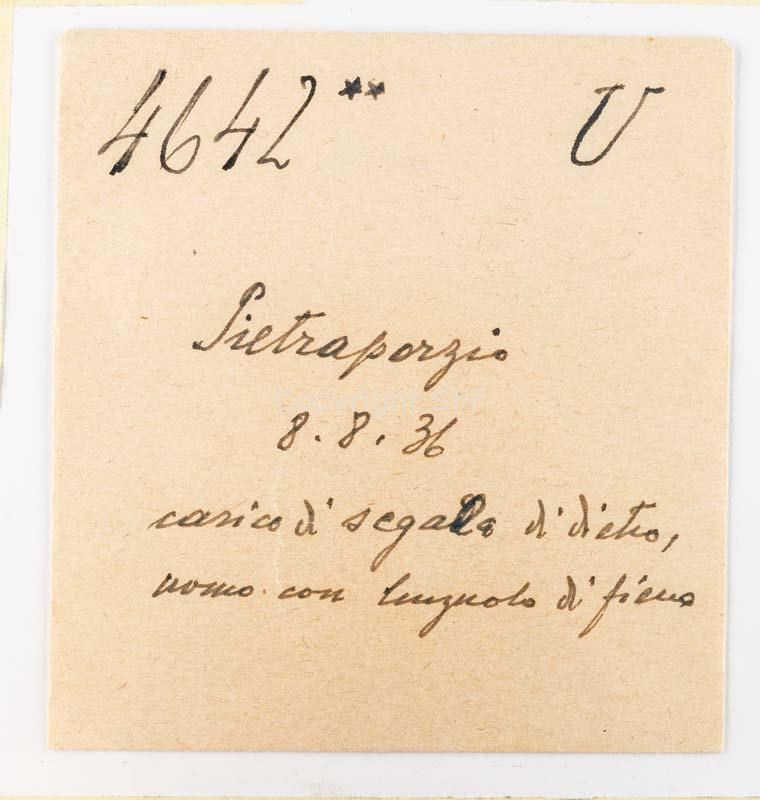 4642** U
Pietraporzio
8.8.36
carico di segale di dietro,
uomo con lenzuolo di fieno